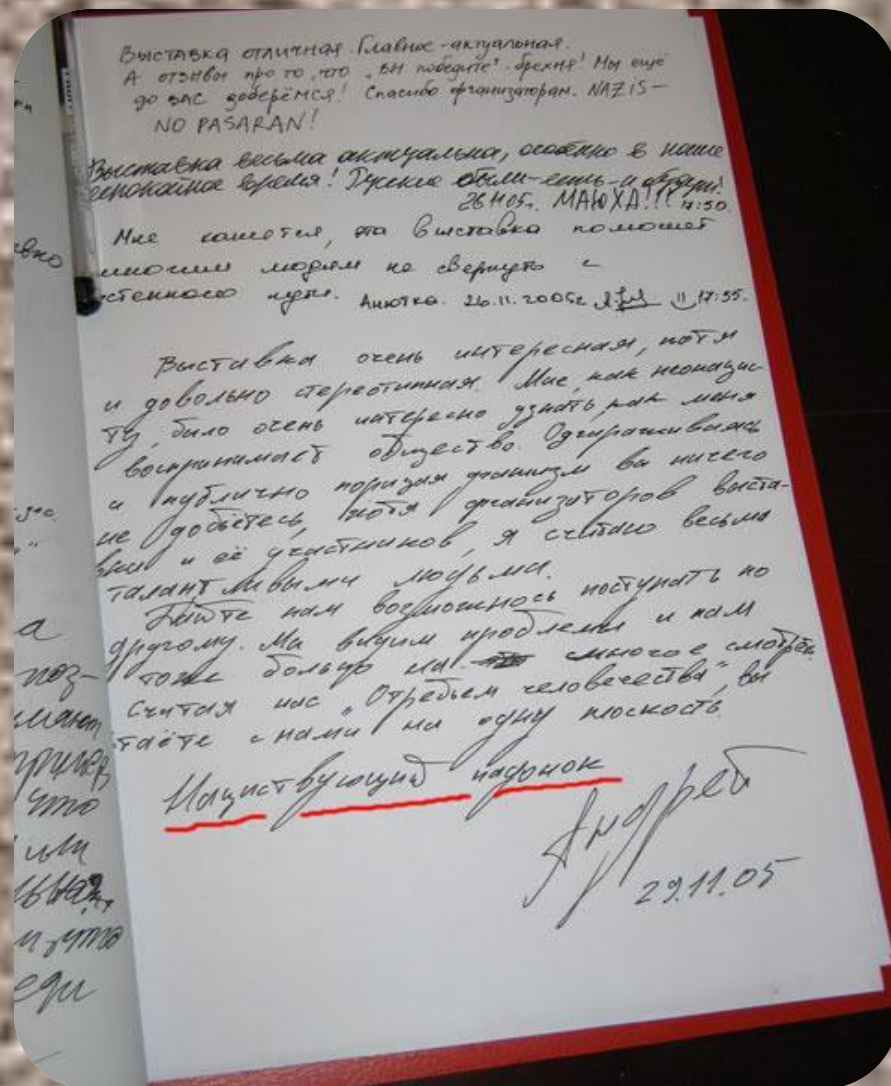 Выставка отличная. Главное - актуальная.
А отзывы про то, что „вы победите" - брехня! Мы ещё
до вас доберёмся! Спасибо организаторам. NAZIS —
NO PASARAN!
Выставка весьма актуальна, особенно в наше
спокойное время! Русские были-есть-и будут!
26.11.05г. МАЮХА!!! 17:50.
Мне кажется, эта выставка поможет
многим людям не свернуть с
стенного пути. Анютка. 26.11.2005г. 17:55.
Выставка очень интересная, хотя
и довольно стереотипная. Мне, как неонацис-
ту, было очень интересно узнать, как меня
воспринимает общество. Одурачиваясь
и публично порицая фашизм вы ничего
не добьётесь, хотя организаторов выста-
вки и её участников, я считаю весьма
талантливыми людьми.
Дайте нам возможнось поступать по
другому. Мы видим проблемы и нам
тоже больно на многое смотреть
Считая нас „Отребьем человечества", вы
таёте с нами на одну плоскость.
Нациствующий падонок
Андрей
29.11.05
вно
а
поз-
что
или
еди